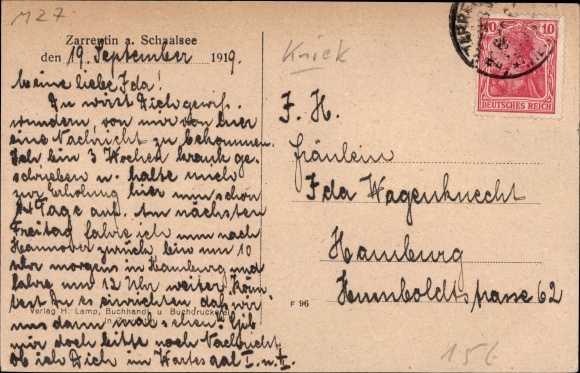 M 27
Zarrentin a. Schaalsee
den 19. September 1919.
Meine liebe Ida!
Du wirst Dich gewiß
wundern, von mir von hier
eine Nachricht zu bekommen.
Ich bin 3 Wochen krank ge-
schrieben u. halte mich
zur Erholung hier nun schon
14 Tage auf. Am nächsten
Freitag fahre ich nun nach
Hannover zurück, bin um 10
Uhr morgens in Hamburg und
fahre um 12 Uhr weiter. Könn-
test Du es einrichten daß wir
uns dann mal sehen? Gib
mir doch bitte noch Nachricht
ob ich Dich im Wartesaal I. u. II.
Verlag H. Lamp, Buchhandl. u. Buchdruckerei
Knick
F. H.
Fräulein
Ida Wagenknecht
Hamburg
Humboldtstrasse 62
F 96
15€
10 10
DEUTSCHES REICH